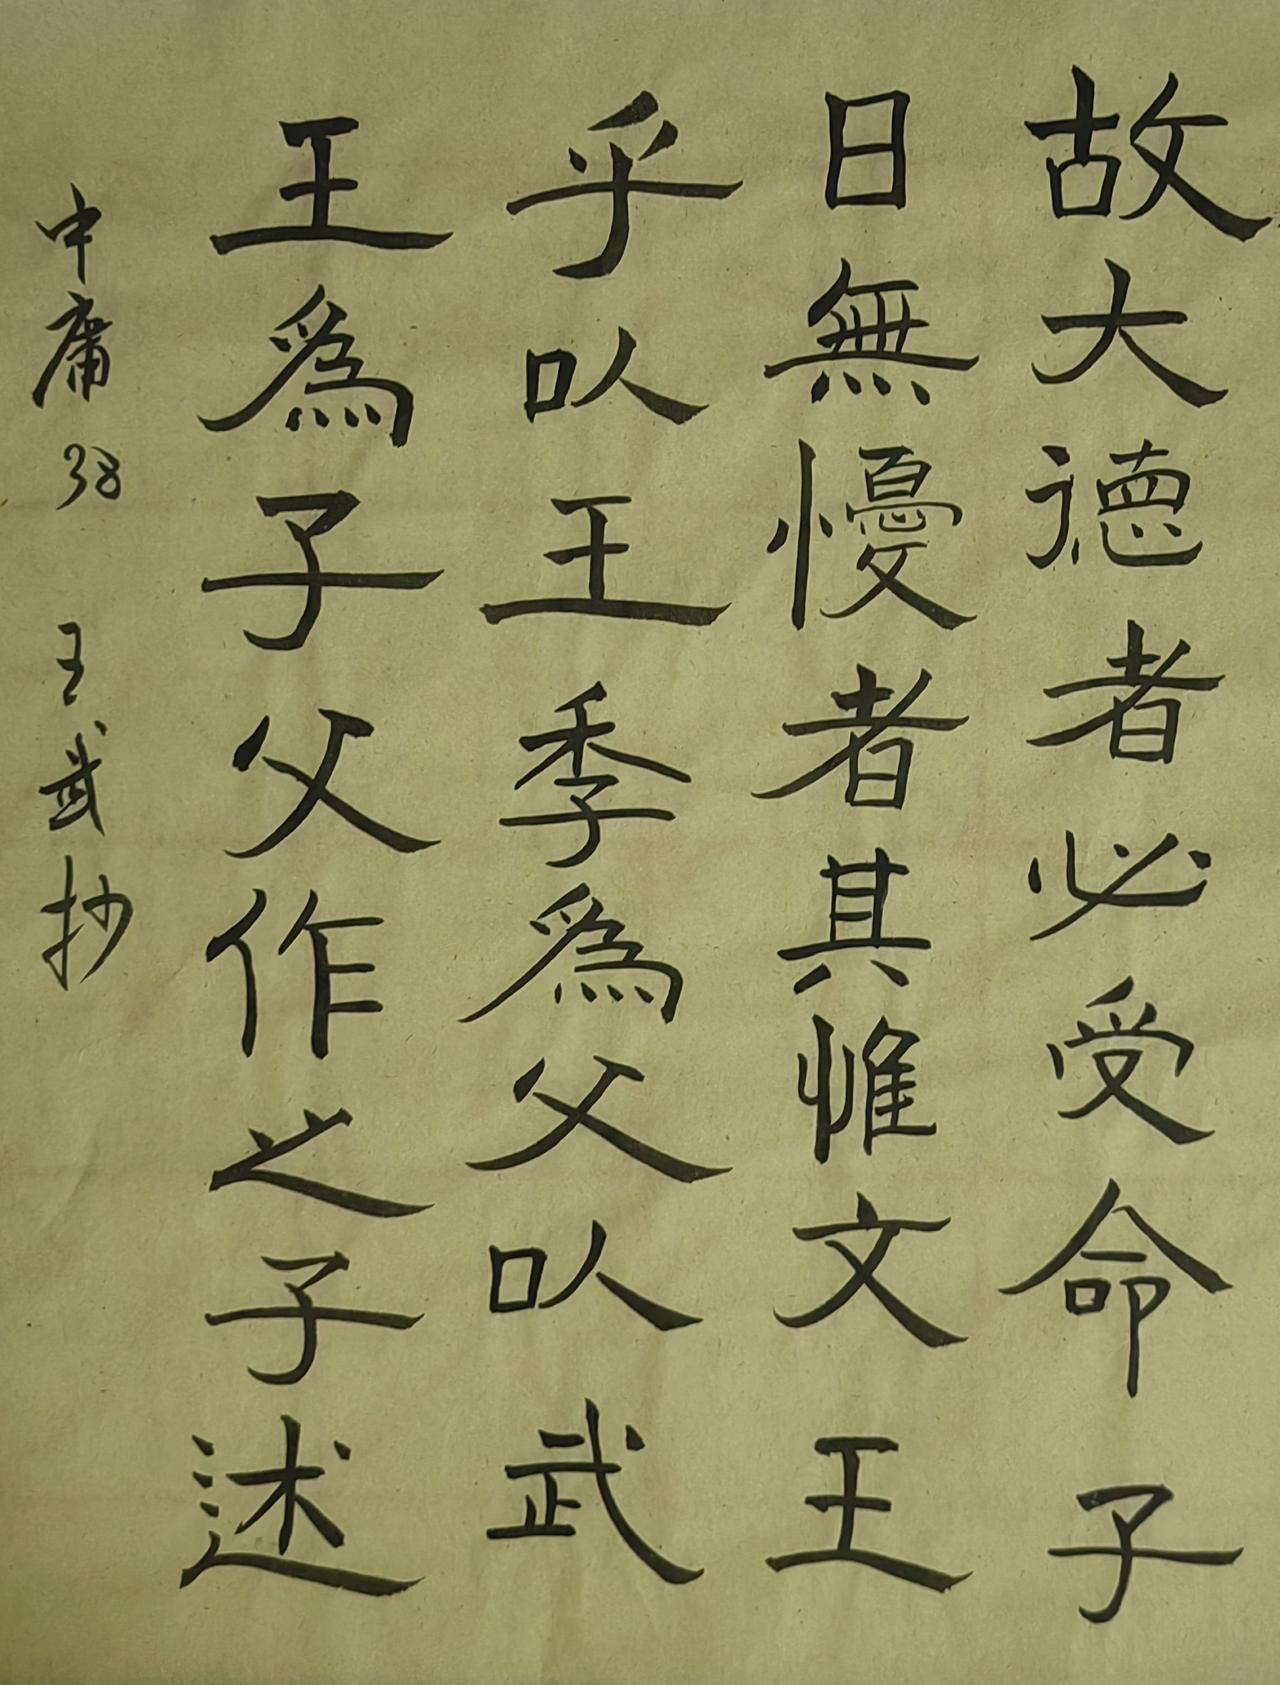 故大德者必受命子
日無懮者其惟文王
乎以王季為父以武
王為子父作之子述
中庸38 王武抄